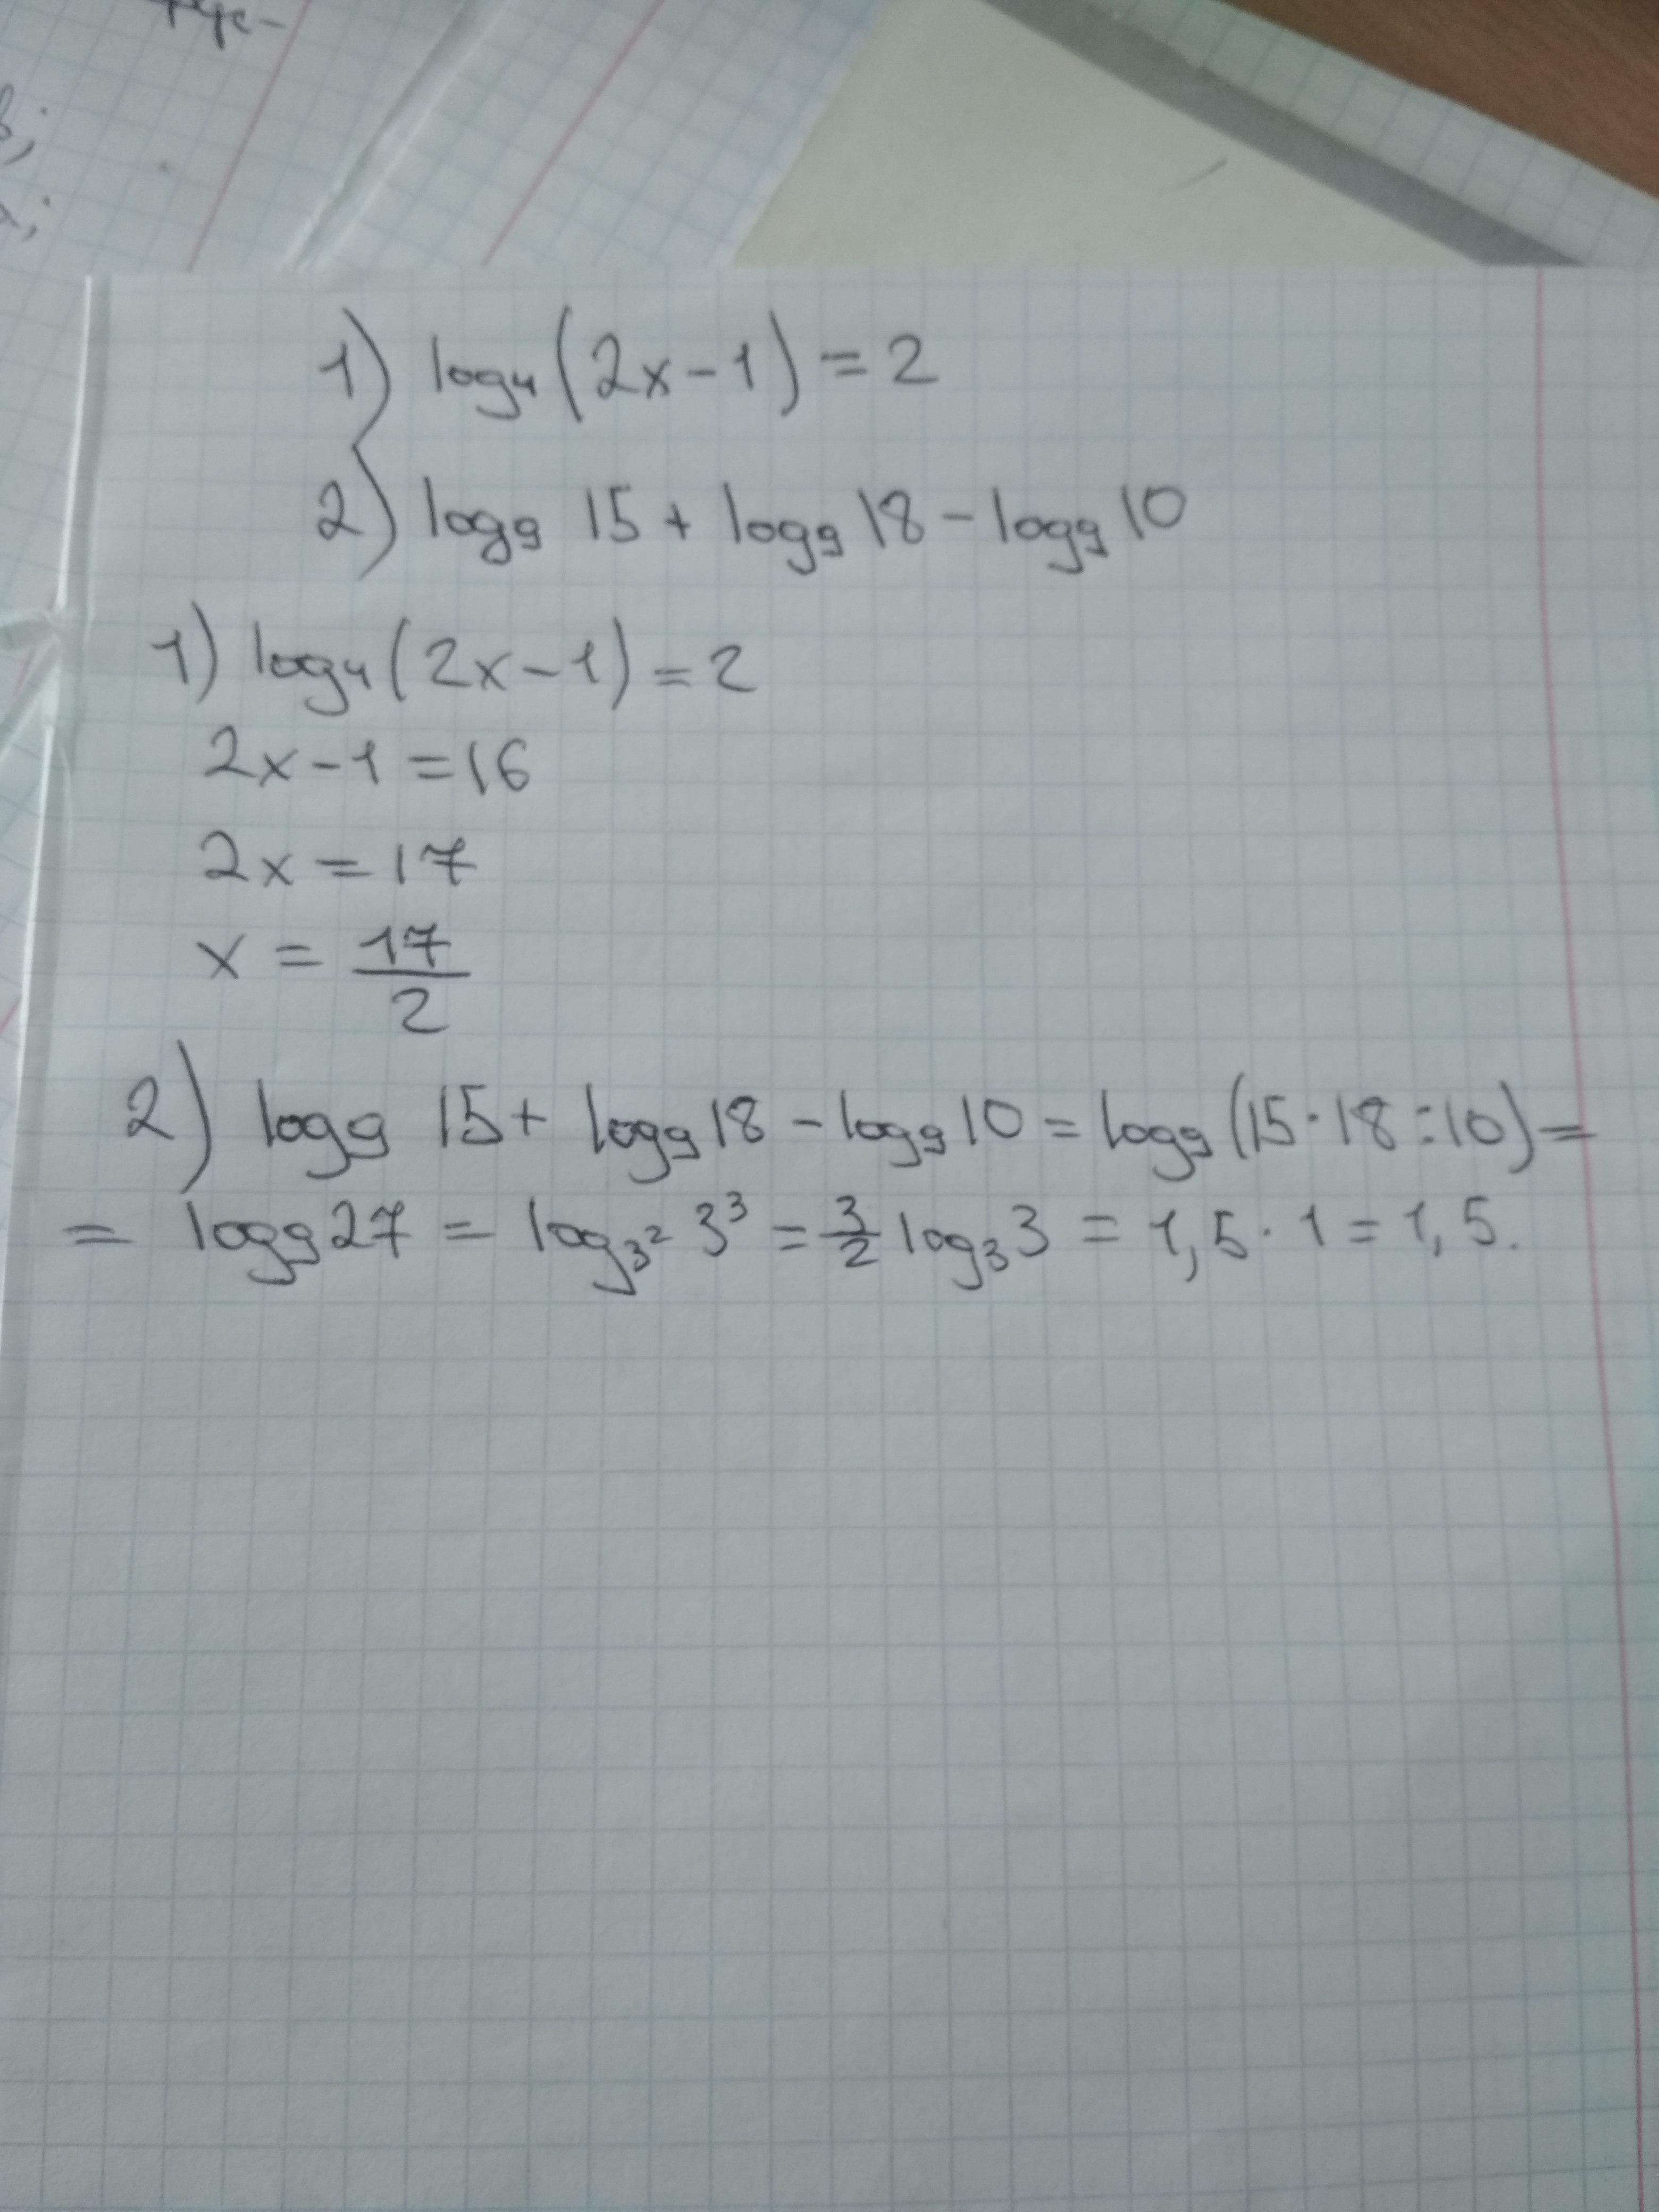 1) log₄(2x-1)=2
2) log₉ 15 + log₉ 18 - log₉ 10
1) log₄(2x-1)=2
2x-1=16
2x=17
x = 17/2
2) log₉ 15 + log₉ 18 - log₉ 10 = log₉ (15·18:10) =
= log₉ 27 = log₃² 3³ = 3/2 log₃ 3 = 1,5·1 = 1,5.